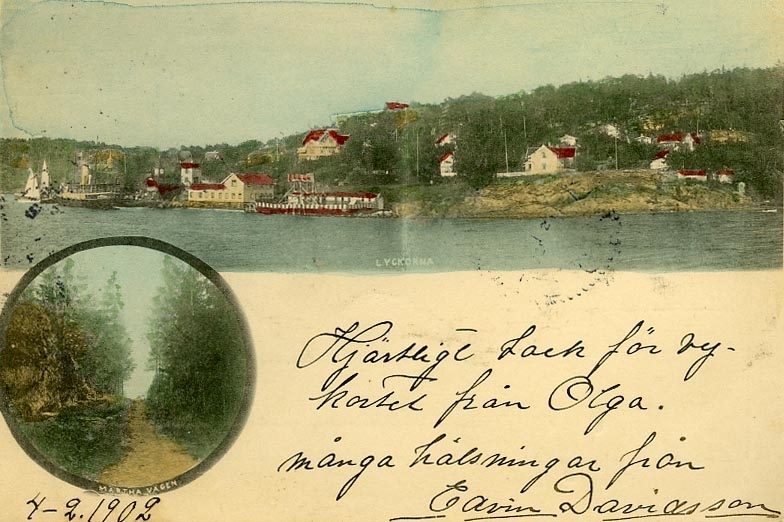 LYCKORNA
Hjärtligt tack för vy-
kortet från Olga.
många hälsningar från
Edvin Davidsson
MARTHA VÄGEN
4-2.1902